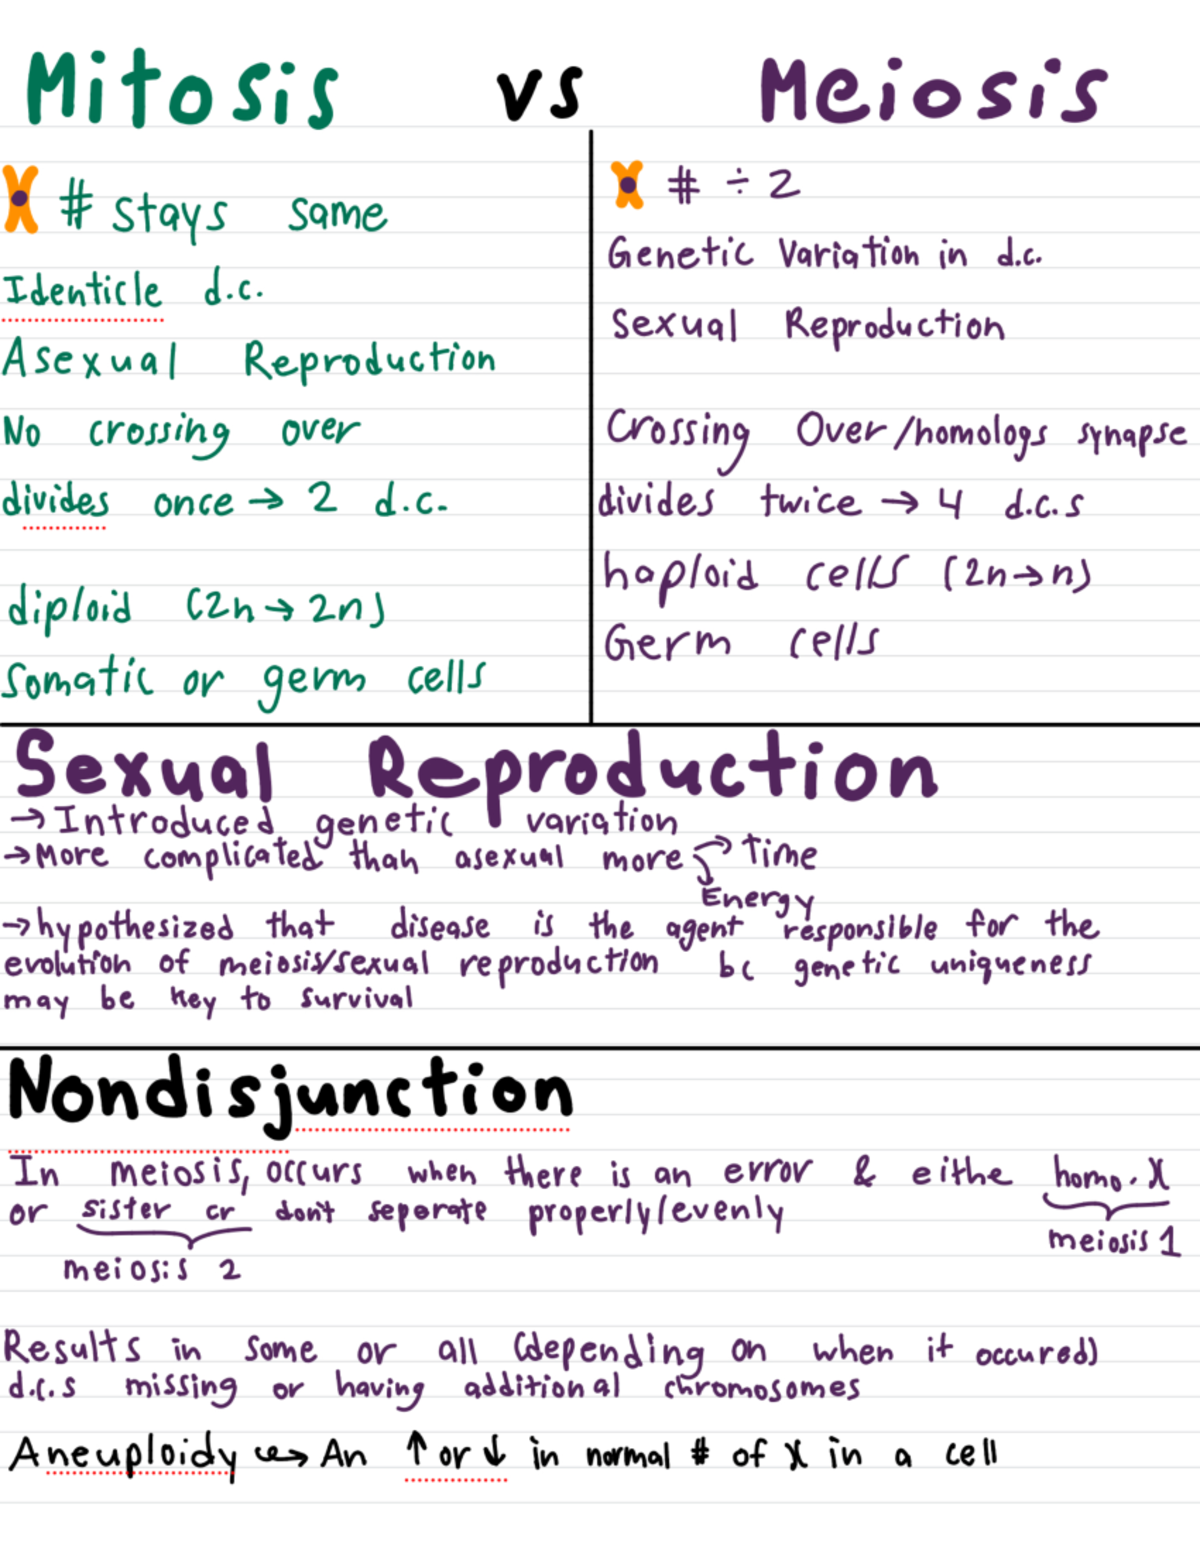 Mitosis vs Meiosis
# stays same
Identicle d.c.
Asexual Reproduction
No crossing over
divides once → 2 d.c.
diploid (2n → 2n)
Somatic or germ cells
# ÷ 2
Genetic Variation in d.c.
Sexual Reproduction
Crossing Over/homologs synapse
divides twice → 4 d.c.s
haploid cells (2n→n)
Germ cells
Sexual Reproduction
→ Introduced genetic variation
→ More complicated than asexual more → Time
Energy
→ hypothesized that disease is the agent responsible for the
evolution of meiosis/sexual reproduction bc genetic uniqueness
may be key to survival
Nondisjunction
In meiosis, occurs when there is an error & eithe homo. X
or sister cr don't seperate properly/evenly
meiosis 1
meiosis 2
Results in some or all (depending on when it occured)
d.c.s missing or having additional chromosomes
Aneuploidy ↔ An ↑ or ↓ in normal # of X in a cell